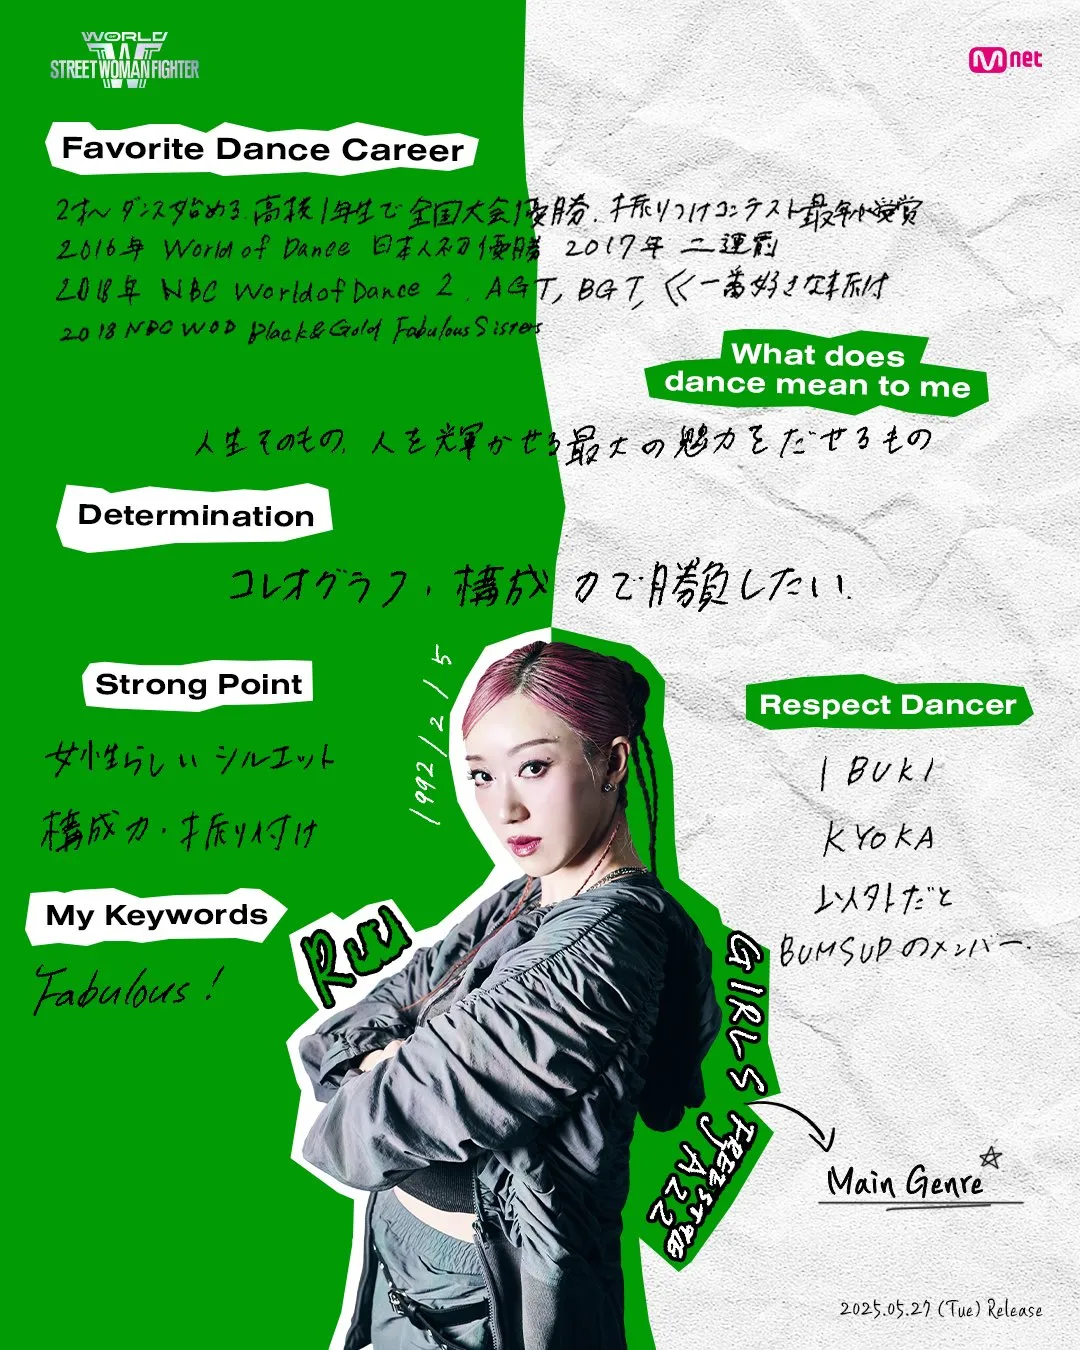 WORLD
W
STREET WOMAN FIGHTER
Mnet
Favorite Dance Career
2才〜ダンス始める.高校1年生で全国大会優勝.振りつけコンテスト最年少受賞
2016年 World of Dance 日本人初優勝 2017年 二連覇
2018年 NBC World of Dance 2. AGT, BGT, 《一番好きな振付
2018 NBC WOD Black&Gold Fabulous Sisters
What does
dance mean to me
人生そのもの.人を輝かせる最大の魅力をだせるもの
Determination
コレオグラフ・構成力で勝負したい.
Strong Point
女性らしいシルエット
構成力・振り付け
1992/2/5
Respect Dancer
IBUKI
KYOKA
以外だと
BUMSUPのメンバー.
My Keywords
Fabulous!
Ruu
GIRLS
FREESTYLE
JAZZ
Main Genre☆
2025.05.27 (Tue) Release